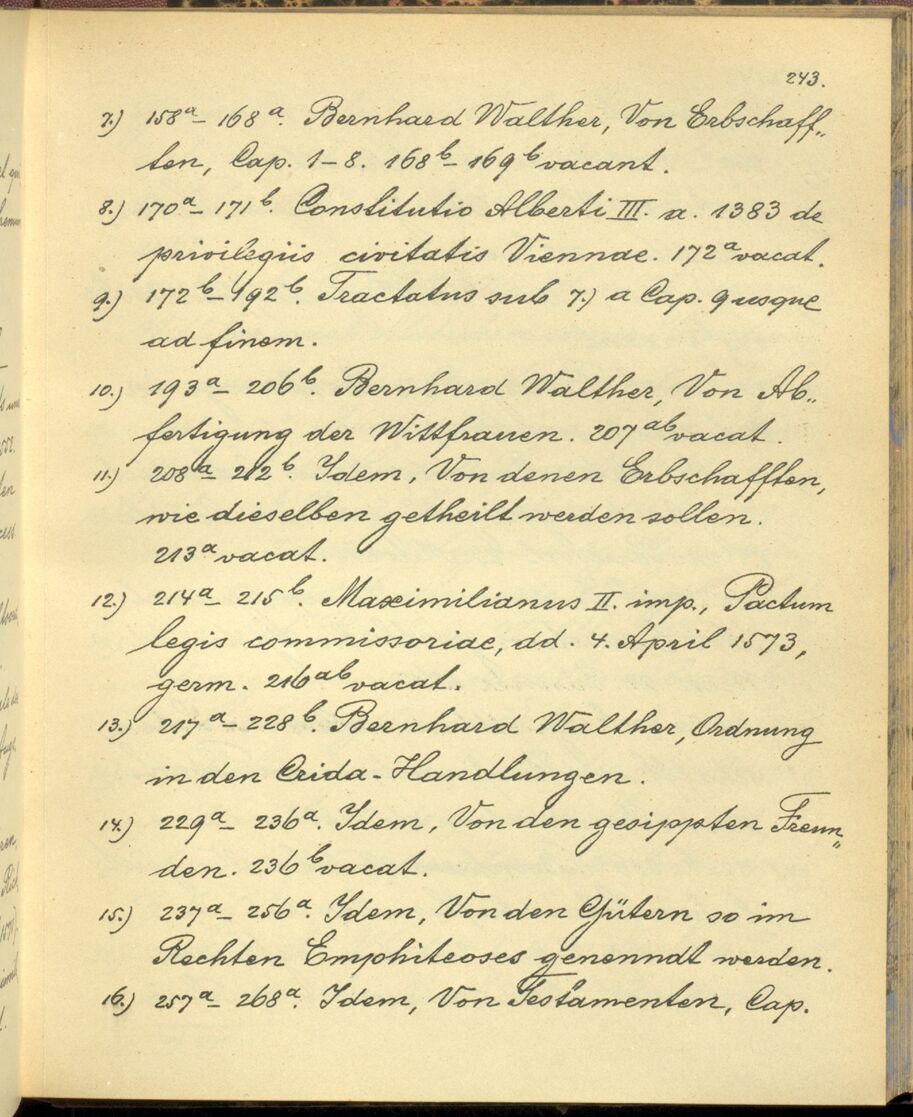 243.
7.) 158ᵃ– 168ᵃ. Bernhard Walther, Von Erbschaff„
ten, Cap. 1–8. 168ᵇ–169ᵇ vacant.
8.) 170ᵃ–171ᵇ. Constitutio Alberti III. a. 1383 de
privilegiis civitatis Viennae. 172ᵃ vacat.
9.) 172ᵇ–192ᵇ. Tractatus sub 7.) a Cap. 9 usque
ad finem.
10.) 193ᵃ– 206ᵇ. Bernhard Walther, Von Ab„
fertigung der Wittfrauen. 207ᵃᵇ vacat.
11.) 208ᵃ– 212ᵇ. Idem, Von denen Erbschafften,
wie dieselben getheilt werden sollen.
213ᵃ vacat.
12.) 214ᵃ– 215ᵇ. Maximilianus II. imp., Pactum
legis commissoriae, dd. 4. April 1573,
germ. 216ᵃᵇ vacat.
13.) 217ᵃ– 228ᵇ. Bernhard Walther, Ordnung
in den Crida-Handlungen.
14.) 229ᵃ– 236ᵃ. Idem, Von den gesippten Freun„
den. 236ᵇ vacat.
15.) 237ᵃ– 256ᵃ. Idem, Von den Gütern so im
Rechten Emphiteoses genenndt werden.
16.) 257ᵃ– 268ᵃ. Idem, Von Testamenten, Cap.